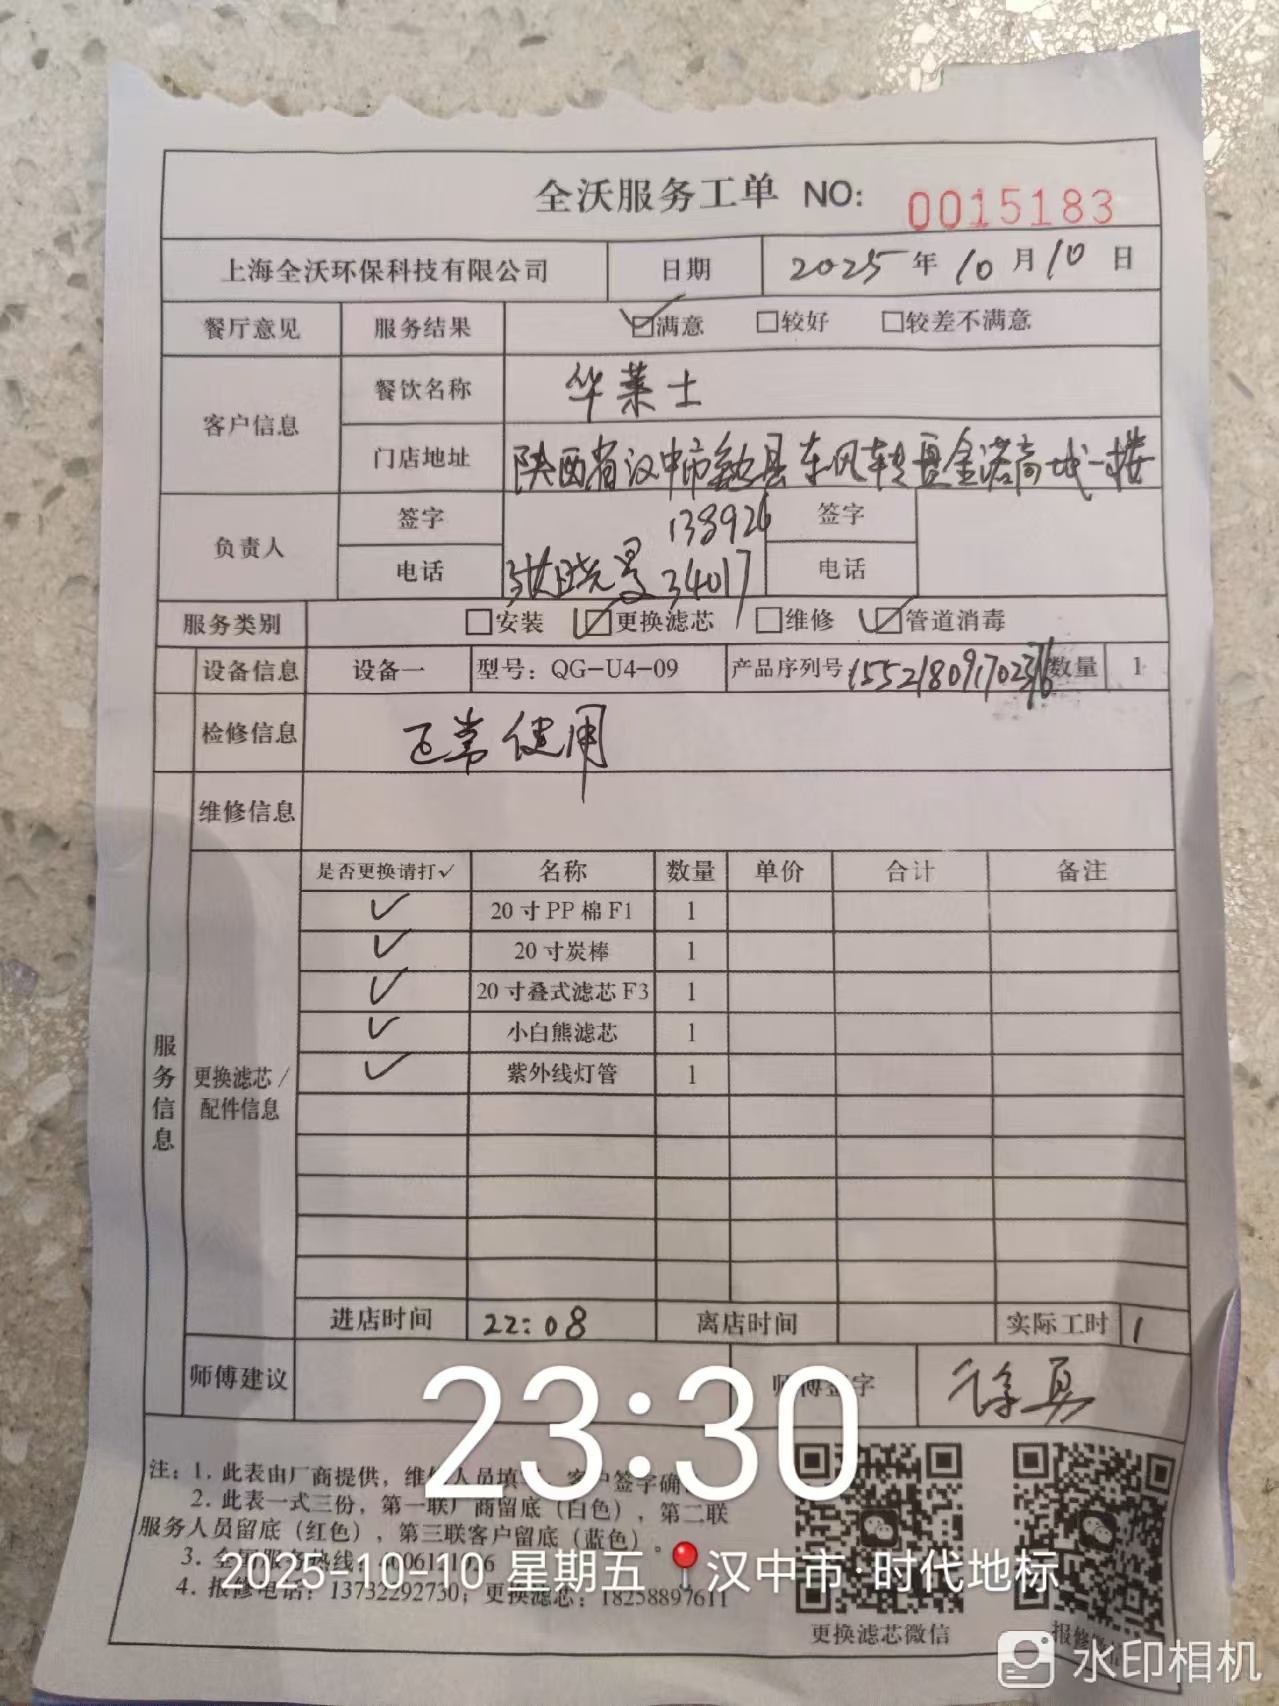 全沃服务工单 NO: 0015183
上海全沃环保科技有限公司 日期 2025年10月10日
餐厅意见 服务结果 ☑满意 □较好 □较差不满意
客户信息 餐饮名称 华莱士
门店地址 陕西省汉中市勉县东风转盘金诺商城一楼
负责人 签字 138926 签字
电话 张晓 34017 电话
服务类别 □安装 ☑更换滤芯 □维修 ☑管道消毒
设备信息 设备一 型号：QG-U4-09 产品序列号 数量 1
检修信息 正常使用
维修信息
是否更换请打✓ 名称 数量 单价 合计 备注
✓ 20寸PP棉F1 1
✓ 20寸炭棒 1
✓ 20寸叠式滤芯F3 1
✓ 小白熊滤芯 1
✓ 紫外线灯管 1
服务信息
更换滤芯/
配件信息
进店时间 22:08 离店时间 实际工时 1
师傅建议 师傅签字 徐勇
23:30
注：1. 此表由厂商提供，维修人员填写，客户签字确
2. 此表一式三份，第一联厂商留底（白色），第二联
服务人员留底（红色），第三联客户留底（蓝色）。
3. 全国服务热线：
4. 报修电话：13732292730；更换滤芯：18258897611
2025-10-10 星期五 汉中市·时代地标
更换滤芯微信 报修
水印相机